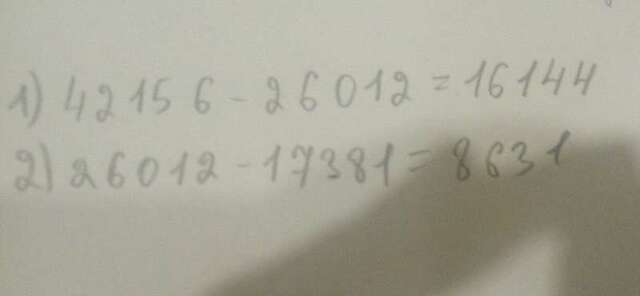 1) 42156 - 26012 = 16144
2) 26012 - 17381 = 8631